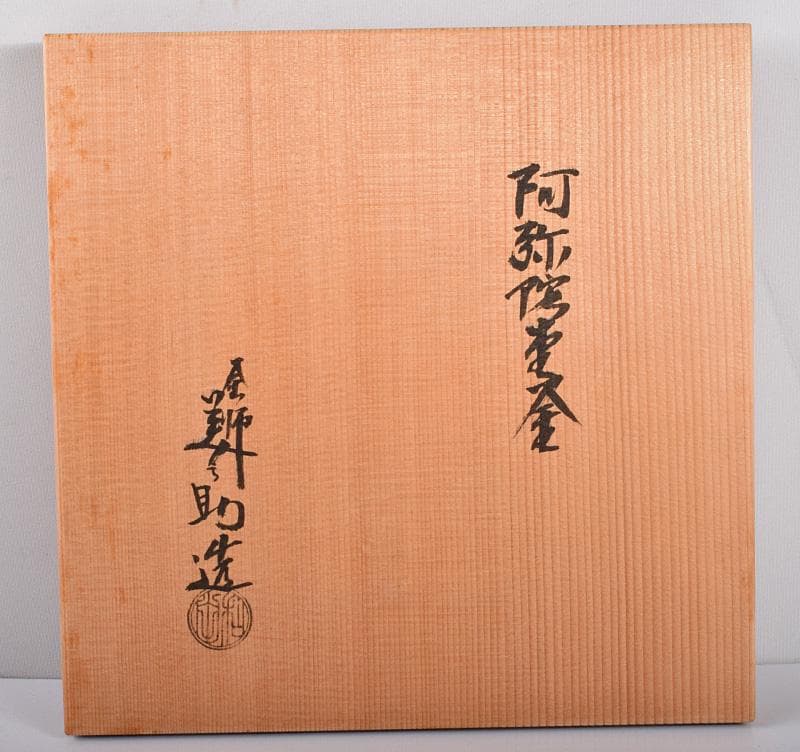 阿弥陀堂釜
釜師美之助造